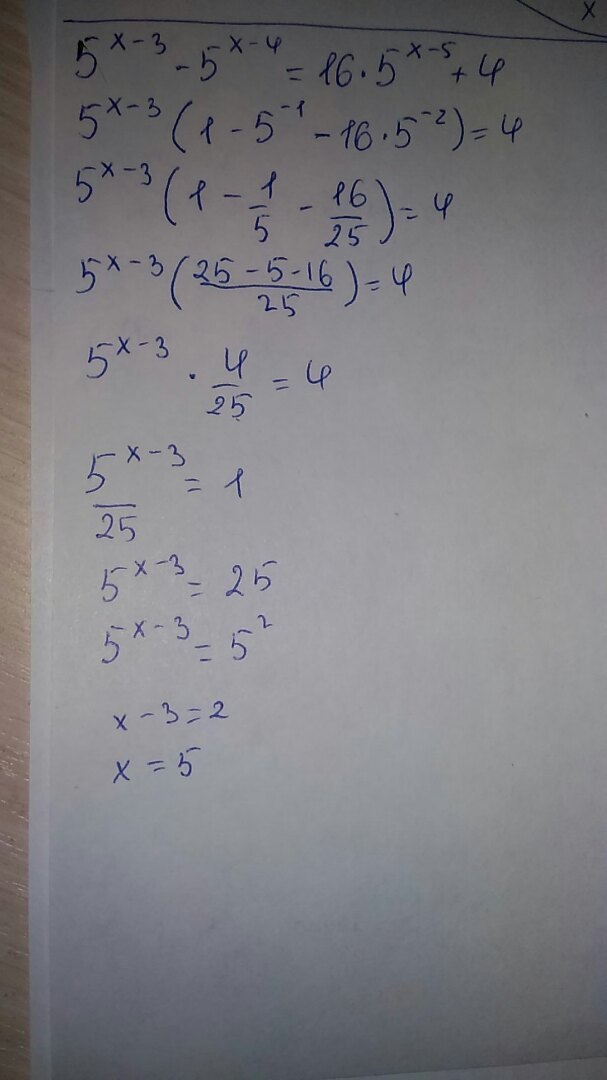 x
5^{x-3} - 5^{x-4} = 16 · 5^{x-5} + 4
5^{x-3} (1 - 5^{-1} - 16 · 5^{-2}) = 4
5^{x-3} (1 - 1/5 - 16/25) = 4
5^{x-3} ((25 - 5 - 16)/25) = 4
5^{x-3} · 4/25 = 4
5^{x-3}/25 = 1
5^{x-3} = 25
5^{x-3} = 5^2
x - 3 = 2
x = 5